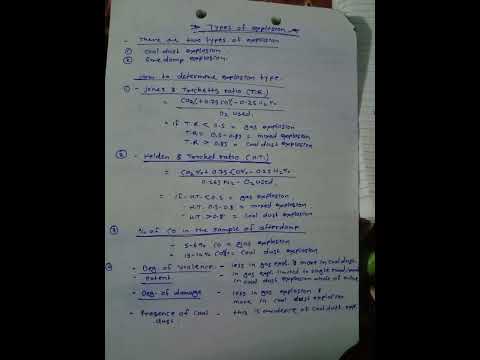 Types of explosion
- There are two types of explosion
① Coal dust explosion
② firedamp explosion.
How to determine explosion type.
①- Jones & Tricketts ratio (T.R.)
= CO2% + 0.75 CO% - 0.25 H2%
O2 used.
= if T.R < 0.5 = gas explosion
T.R = 0.5 - 0.87 = mixed explosion
T.R > 0.87 = Coal dust explosion
② - Ratio (H.T.)
= CO2% + 0.75 CO% - 0.25 H2%
0.265 N2 - O2 used.
= if - H.T. < 0.5 = gas explosion
- H.T. 0.5 - 0.8 = mixed explosion
- H.T > 0.8 = Coal dust explosion
③ % of CO in the sample of afterdamp.
- 5-6% CO = gas explosion
CO = Coal dust explosion
- Deg. of Violence - less in gas expl. & more in Coal dust.
- extent - in gas expl. limited to single
in coal dust explosion whole of mine
- Deg. of damage - less in gas explosion &
more in coal dust explosion
- Presence of Coal - this is evidence of coal dust expl.
dust